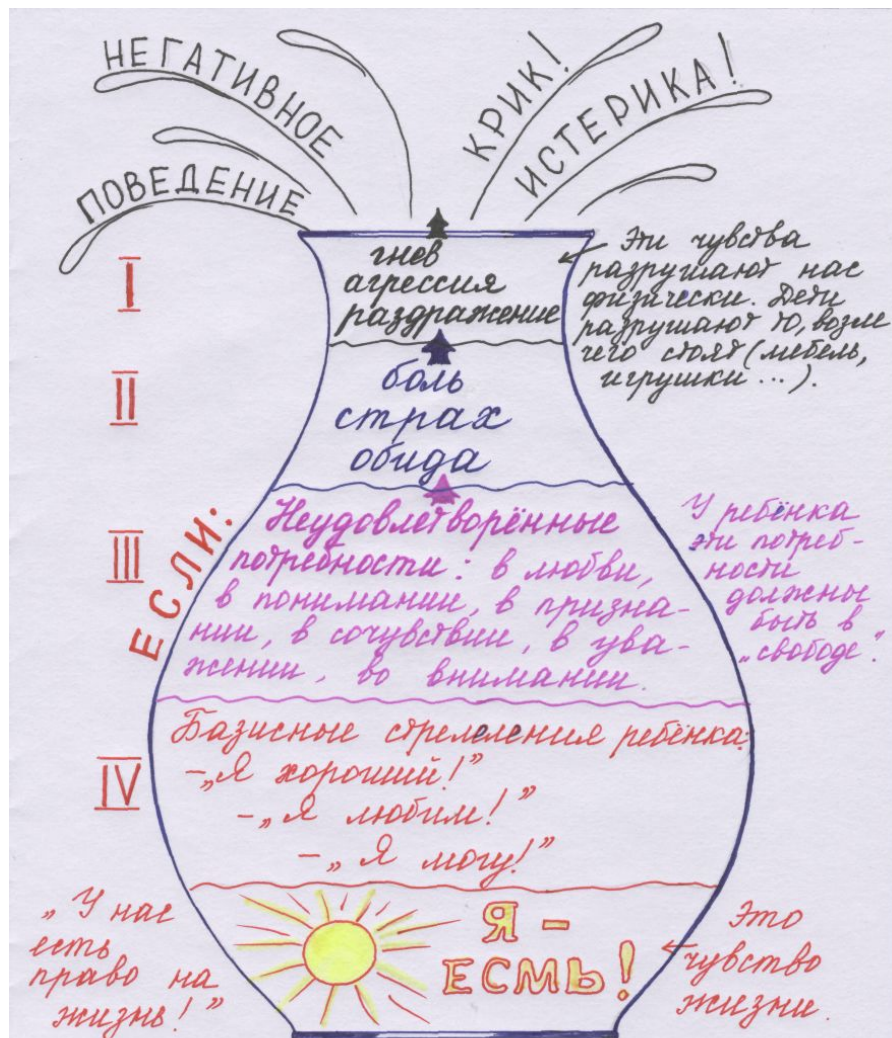 НЕГАТИВНОЕ
ПОВЕДЕНИЕ
КРИК!
ИСТЕРИКА!
I
гнев
агрессия
раздражение
Эти чувства
разрушают нас
физически. Дети
разрушают то, возле
чего стоят (мебель,
игрушки...).
II
боль
страх
обида
ЕСЛИ:
III
Неудовлетворённые
потребности: в любви,
в понимании, в призна-
нии, в сочувствии, в ува-
жении, во внимании.
У ребёнка
эти потреб-
ности
должны
быть в
„свободе".
IV
Базисные стремеления ребёнка:
-„Я хороший!"
-„Я любим!"
-„Я могу!"
„У нас
есть
право на
жизнь!"
Я -
ЕСМЬ!
Это
чувство
жизни.